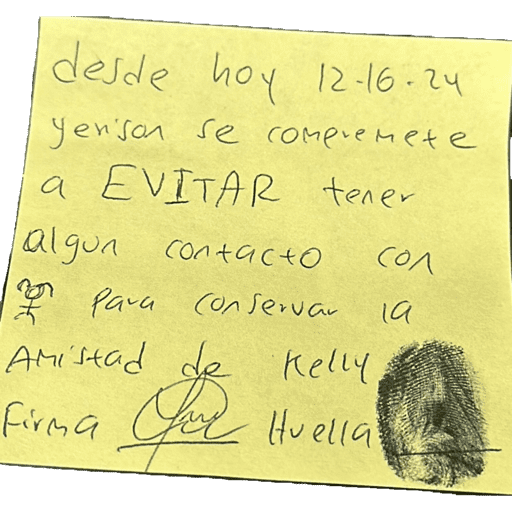 desde hoy 12-16-24
yerison se compremete
a EVITAR tener
algun contacto con
para conservar la
Amistad de Kelly
Firma Huella